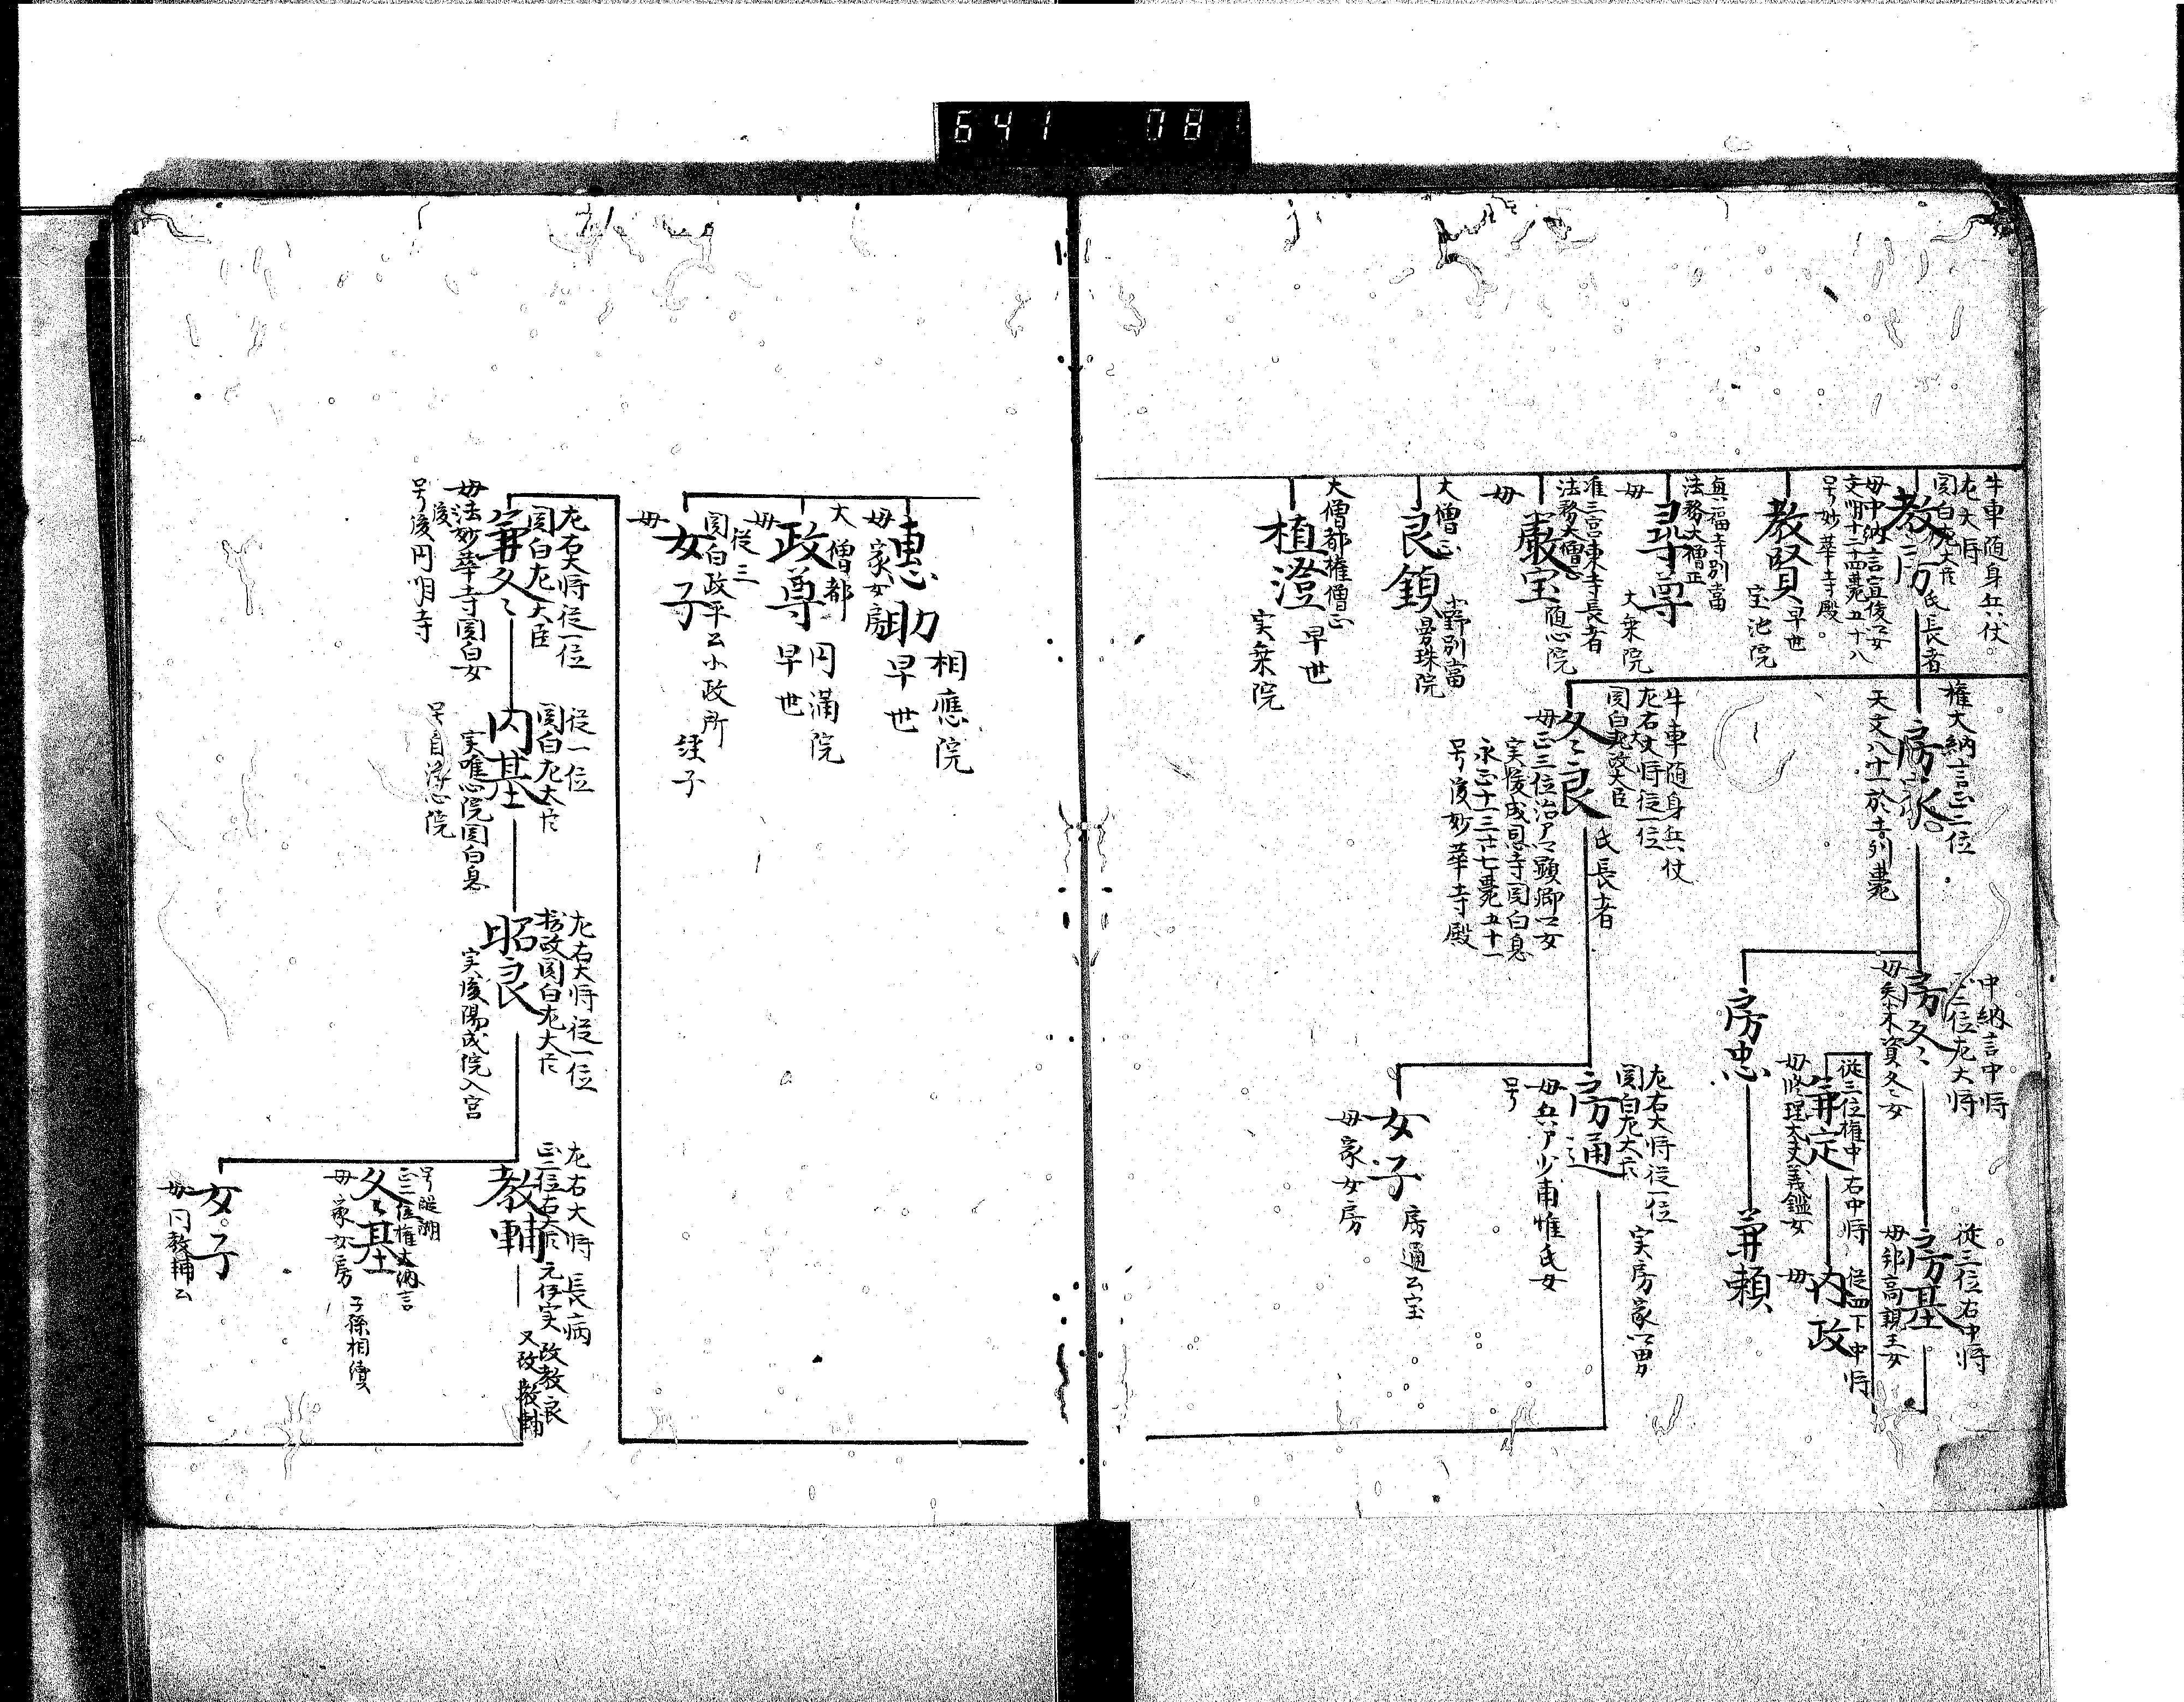 641 081
牛車随身兵仗
左大将
関白左大臣 氏長者
教房
母中納言宣俊女
文明十二十四薨五十八
号妙華寺殿
教賢 早世
宝池院
真福寺別當
法務大僧正
尋尊
母 大乗院
准三宮東寺長者
法務大僧正
厳宝 随心院
母
大僧正
良鎮
曼珠院
大僧都権僧正
植澄 早世
実乗院
権大納言正二位
房
天文八十一於土州薨
中納言中将
正二位左大将
房冬
母
従三位右中将
房基
母邦高親王女
従三位権中 右中将
兼定
母修理大夫義鑑女
従四下中将
内政
母
房忠
兼頼
牛車随身兵仗
左右大将従一位
関白太政大臣
冬良 氏長者
母正三位治部顕卿女
実後成恩寺関白息
永正十一三廿七薨五十一
号後妙華寺殿
左右大将従一位
関白左大臣 実房家一男
房通
母兵部少甫惟氏女
号
女子 房通公室
母家女房
惠助 相應院
早世
母家女房
大僧都
政尊 円満院
早世
母
従三
関白政平公小政所
女子 経子
母
左右大将従一位
関白左大臣
兼冬
母後法妙華寺関白女
号後円明寺
従一位
関白左大臣
内基
実唯心院関白息
号自浄心院
左右大将従一位
摂政関白左大臣
昭良
実後陽成院入宮
左右大将 長病
正二位右大臣 元伊実 改教良
教輔 又改教輔
号醍醐
正二位権大納言
冬基
母家女房 子孫相續
女子
母同教輔公